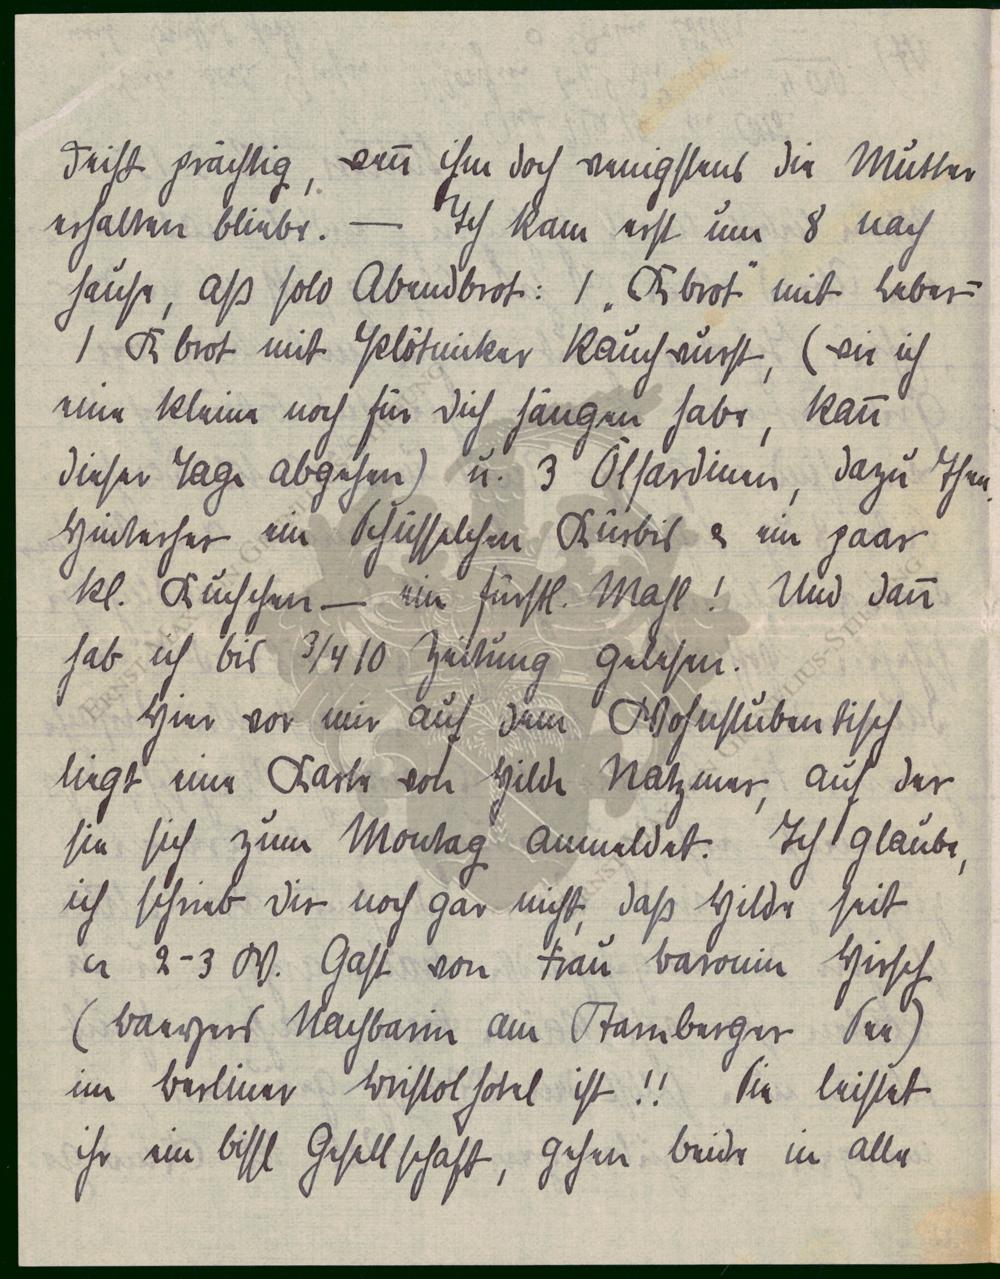 deiht prächtig, wen̄ ihm doch wenigstens die Mutter
erhalten bliebe. — Ich kam erst um 8 nach
hause, aß solo Abendbrot: 1 „Kbrot" mit Leber=
1 Kbrot mit Plötnicker Rauchwurst, (wie ich
eine kleine noch für Dich hängen habe, kan̄
dieser Tage abgehen) u. 3 Ölsardinen, dazu Thee,
Hinterher ein Schüsselchen Kürbis & ein paar
kl. Kuchchen — ein fürstl. Mahl! Und dan̄
hab ich bis 3/4 10 Zeitung gelesen.
Hier vor mir auf dem Wohnstubentisch
liegt eine Karte von Hilde Natzmer, auf der
sie sich zum Montag anmeldet. Ich glaube,
ich schrieb Dir noch gar nicht, daß Hilde seit
ca 2-3 W. Gast von Frau Baronin Hirsch
(Baeyers Nachbarin am Starnberger See)
im Berliner Bristolhotel ist!! Sie leistet
ihr ein bissl Gesellschaft, gehen beide in alle